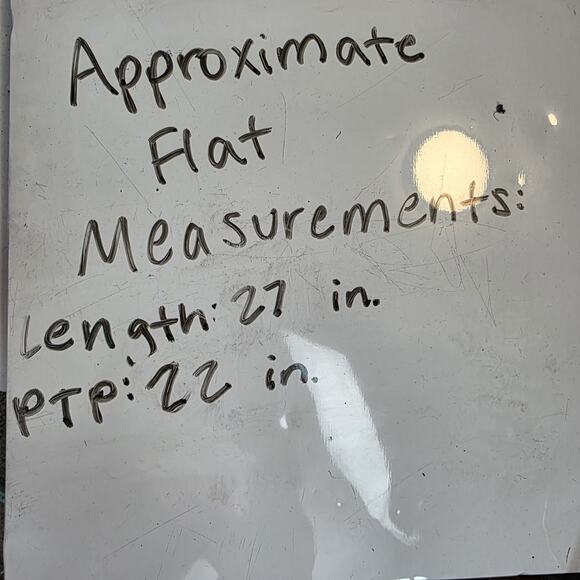 Approximate
Flat
Measurements:
Length: 27 in.
PTP: 22 in.